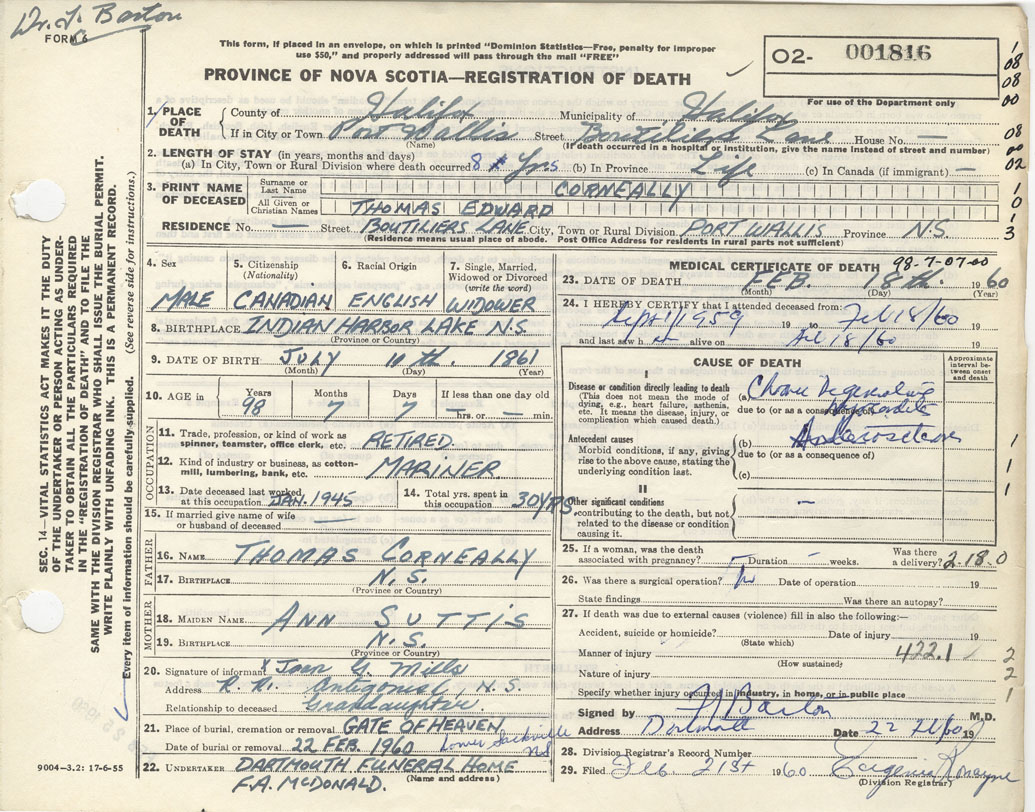 Dr. J. Barton
FORM 6
This form, if placed in an envelope, on which is printed "Dominion Statistics—Free, penalty for improper
use $50," and properly addressed will pass through the mail "FREE"
PROVINCE OF NOVA SCOTIA—REGISTRATION OF DEATH
O2- 001816
For use of the Department only
1. PLACE OF DEATH County of Halifax Municipality of Halifax
If in City or Town Port Wallis Street Boutiliers Lane House No. —
(Name) (If death occurred in a hospital or institution, give the name instead of street and number)
2. LENGTH OF STAY (in years, months and days)
(a) In City, Town or Rural Division where death occurred 8 Yrs (b) In Province Life (c) In Canada (if immigrant) —
3. PRINT NAME OF DECEASED Surname or Last Name CORNEALLY
All Given or Christian Names THOMAS EDWARD
RESIDENCE No. — Street BOUTILIERS LANE City, Town or Rural Division PORT WALLIS Province N.S.
(Residence means usual place of abode. Post Office Address for residents in rural parts not sufficient)
4. Sex 5. Citizenship (Nationality) 6. Racial Origin 7. Single, Married, Widowed or Divorced (write the word)
MALE CANADIAN ENGLISH WIDOWER
8. BIRTHPLACE INDIAN HARBOR LAKE N.S.
(Province or Country)
9. DATE OF BIRTH JULY 11th. 1861
(Month) (Day) (Year)
10. AGE in Years 98 Months 7 Days 7 If less than one day old — hrs. or — min.
OCCUPATION
11. Trade, profession or kind of work as spinner, teamster, office clerk, etc. RETIRED.
12. Kind of industry or business, as cotton-mill, lumbering, bank, etc. MARINER
13. Date deceased last worked at this occupation JAN. 1945 14. Total yrs. spent in this occupation 30 YRS
15. If married give name of wife or husband of deceased —
FATHER
16. NAME THOMAS CORNEALLY
17. BIRTHPLACE N.S.
(Province or Country)
MOTHER
18. MAIDEN NAME ANN SUTTIS
19. BIRTHPLACE N.S.
(Province or Country)
20. Signature of informant x Joan G. Mills
Address R. R. Antigonish, N.S.
Relationship to deceased Granddaughter
21. Place of burial, cremation or removal GATE OF HEAVEN
Lower Sackville NS
Date of burial or removal 22 FEB. 1960
22. UNDERTAKER DARTMOUTH FUNERAL HOME
F.A. McDONALD. (Name and address)
9004—3.2: 17-6-55
MEDICAL CERTIFICATE OF DEATH 98-7-07-00
23. DATE OF DEATH FEB. 18th. 1960
(Month) (Day) (Year)
24. I HEREBY CERTIFY that I attended deceased from:
Sept 1/1959 19 to Feb 18/60 19
and last saw h alive on Feb 18/60 19
CAUSE OF DEATH
Approximate interval between onset and death
I
Disease or condition directly leading to death
(This does not mean the mode of dying, e.g., heart failure, asthenia, etc. It means the disease, injury, or complication which caused death.)
(a) Chronic Degenerative Myocarditis
due to (or as a consequence of)
Antecedent causes
Morbid conditions, if any, giving rise to the above cause, stating the underlying condition last.
(b)
due to (or as a consequence of)
(c)
II
Other significant conditions
contributing to the death, but not related to the disease or condition causing it.
—
25. If a woman, was the death associated with pregnancy? Duration — weeks. Was there a delivery? 2-18.0
26. Was there a surgical operation? Date of operation 19
State findings Was there an autopsy?
27. If death was due to external causes (violence) fill in also the following:—
Accident, suicide or homicide? Date of injury 19
(State which)
Manner of injury 422.1
(How sustained)
Nature of injury
Specify whether injury occurred in industry, in home, or in public place
Signed by J Barton M.D.
Address Dartmouth Date 22 Feb/60 19
28. Division Registrar's Record Number
29. Filed Feb. 21st 1960 Eugenie
(Division Registrar)
1
08
08
00
08
00
02
1
0
1
3
1
1
1
2
2
1
SEC. 14—VITAL STATISTICS ACT MAKES IT THE DUTY
OF THE UNDERTAKER OR PERSON ACTING AS UNDER-
TAKER TO OBTAIN ALL THE PARTICULARS REQUIRED
IN THE "REGISTRATION OF DEATH" AND TO FILE THE
SAME WITH THE DIVISION REGISTRAR WHO SHALL ISSUE THE BURIAL PERMIT.
WRITE PLAINLY WITH UNFADING INK. THIS IS A PERMANENT RECORD.
Every item of information should be carefully supplied. (See reverse side for instructions.)